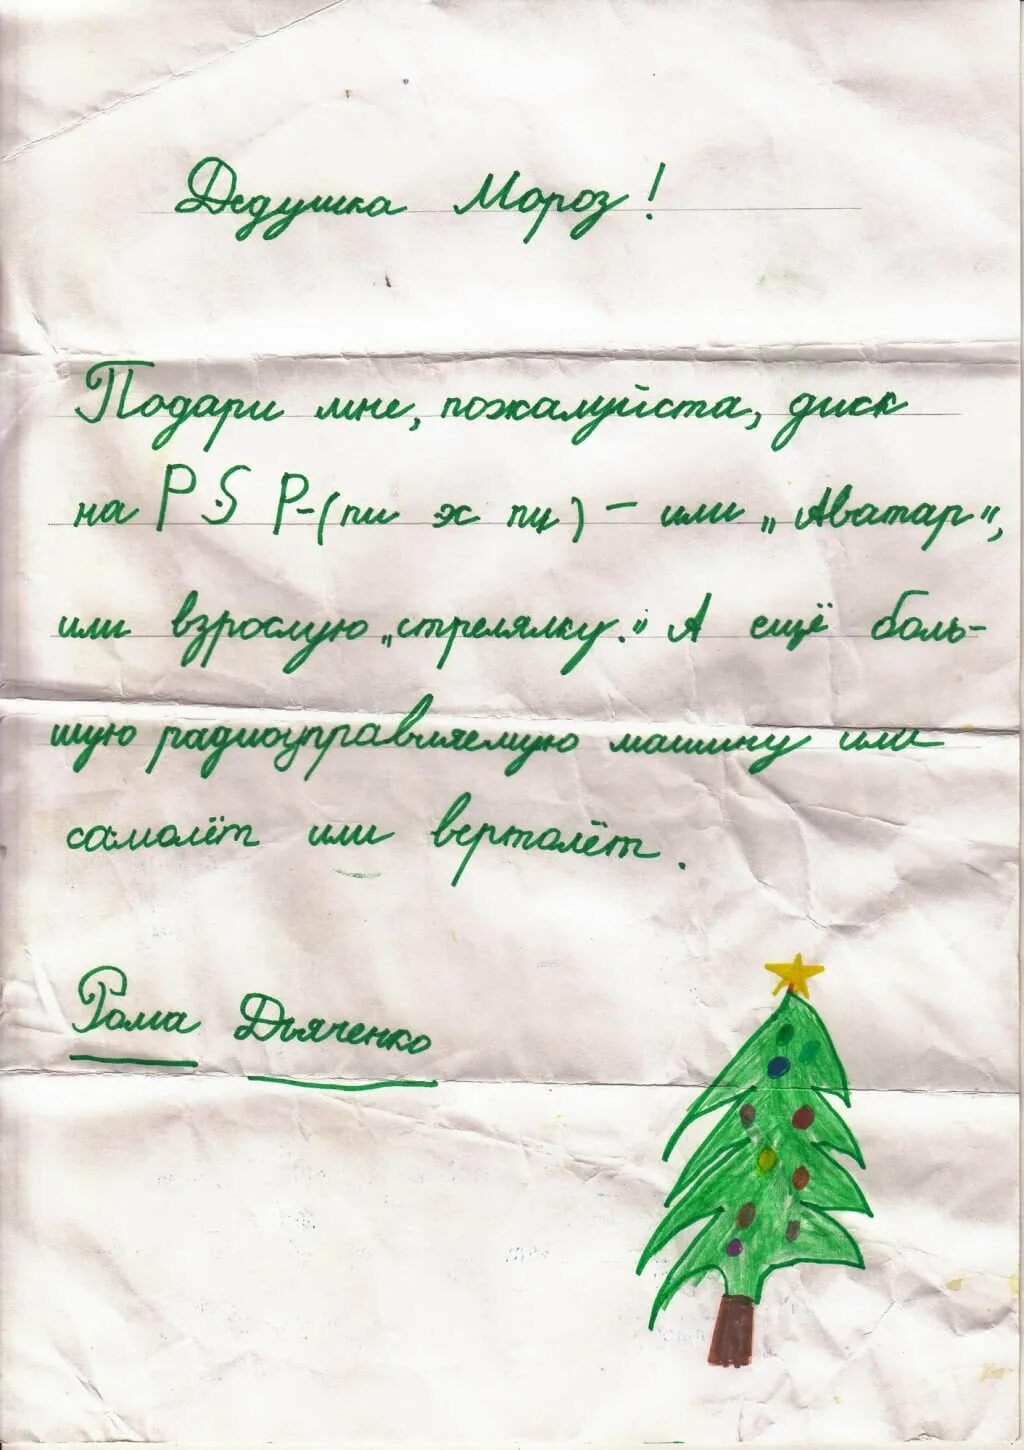 Дедушка Мороз!
Подари мне, пожалуйста, диск
на PSP-(пи эс пи) - или „Аватар“,
или взрослую „стрелялку.“ А ещё боль-
шую радиоуправляемую машину или
самолёт или вертолёт.
Рома Дьяченко